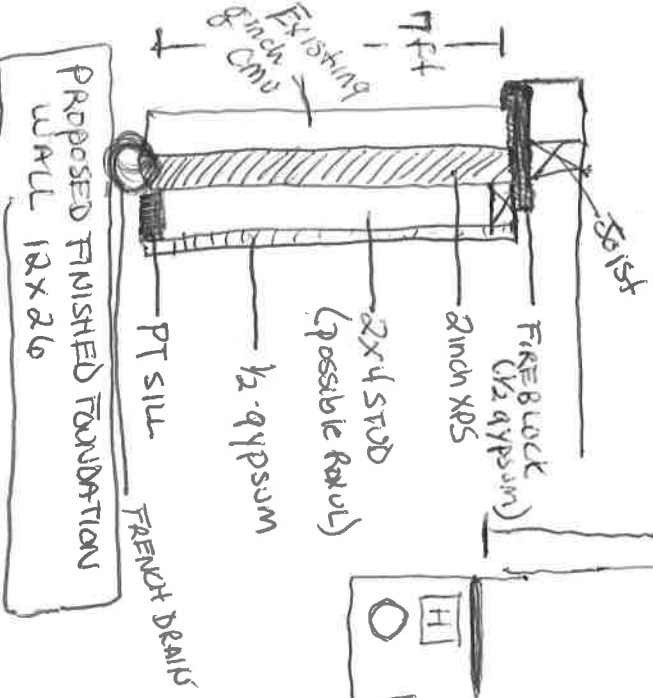 Existing
8 inch
CMU
7 ft
Joist
FIREBLOCK
(1/2 gypsum)
2inch XPS
2x4 STUD
(possible Roxul)
1/2 - gypsum
PT SILL
FRENCH DRAIN
PROPOSED FINISHED FOUNDATION
WALL 12 x 26
H